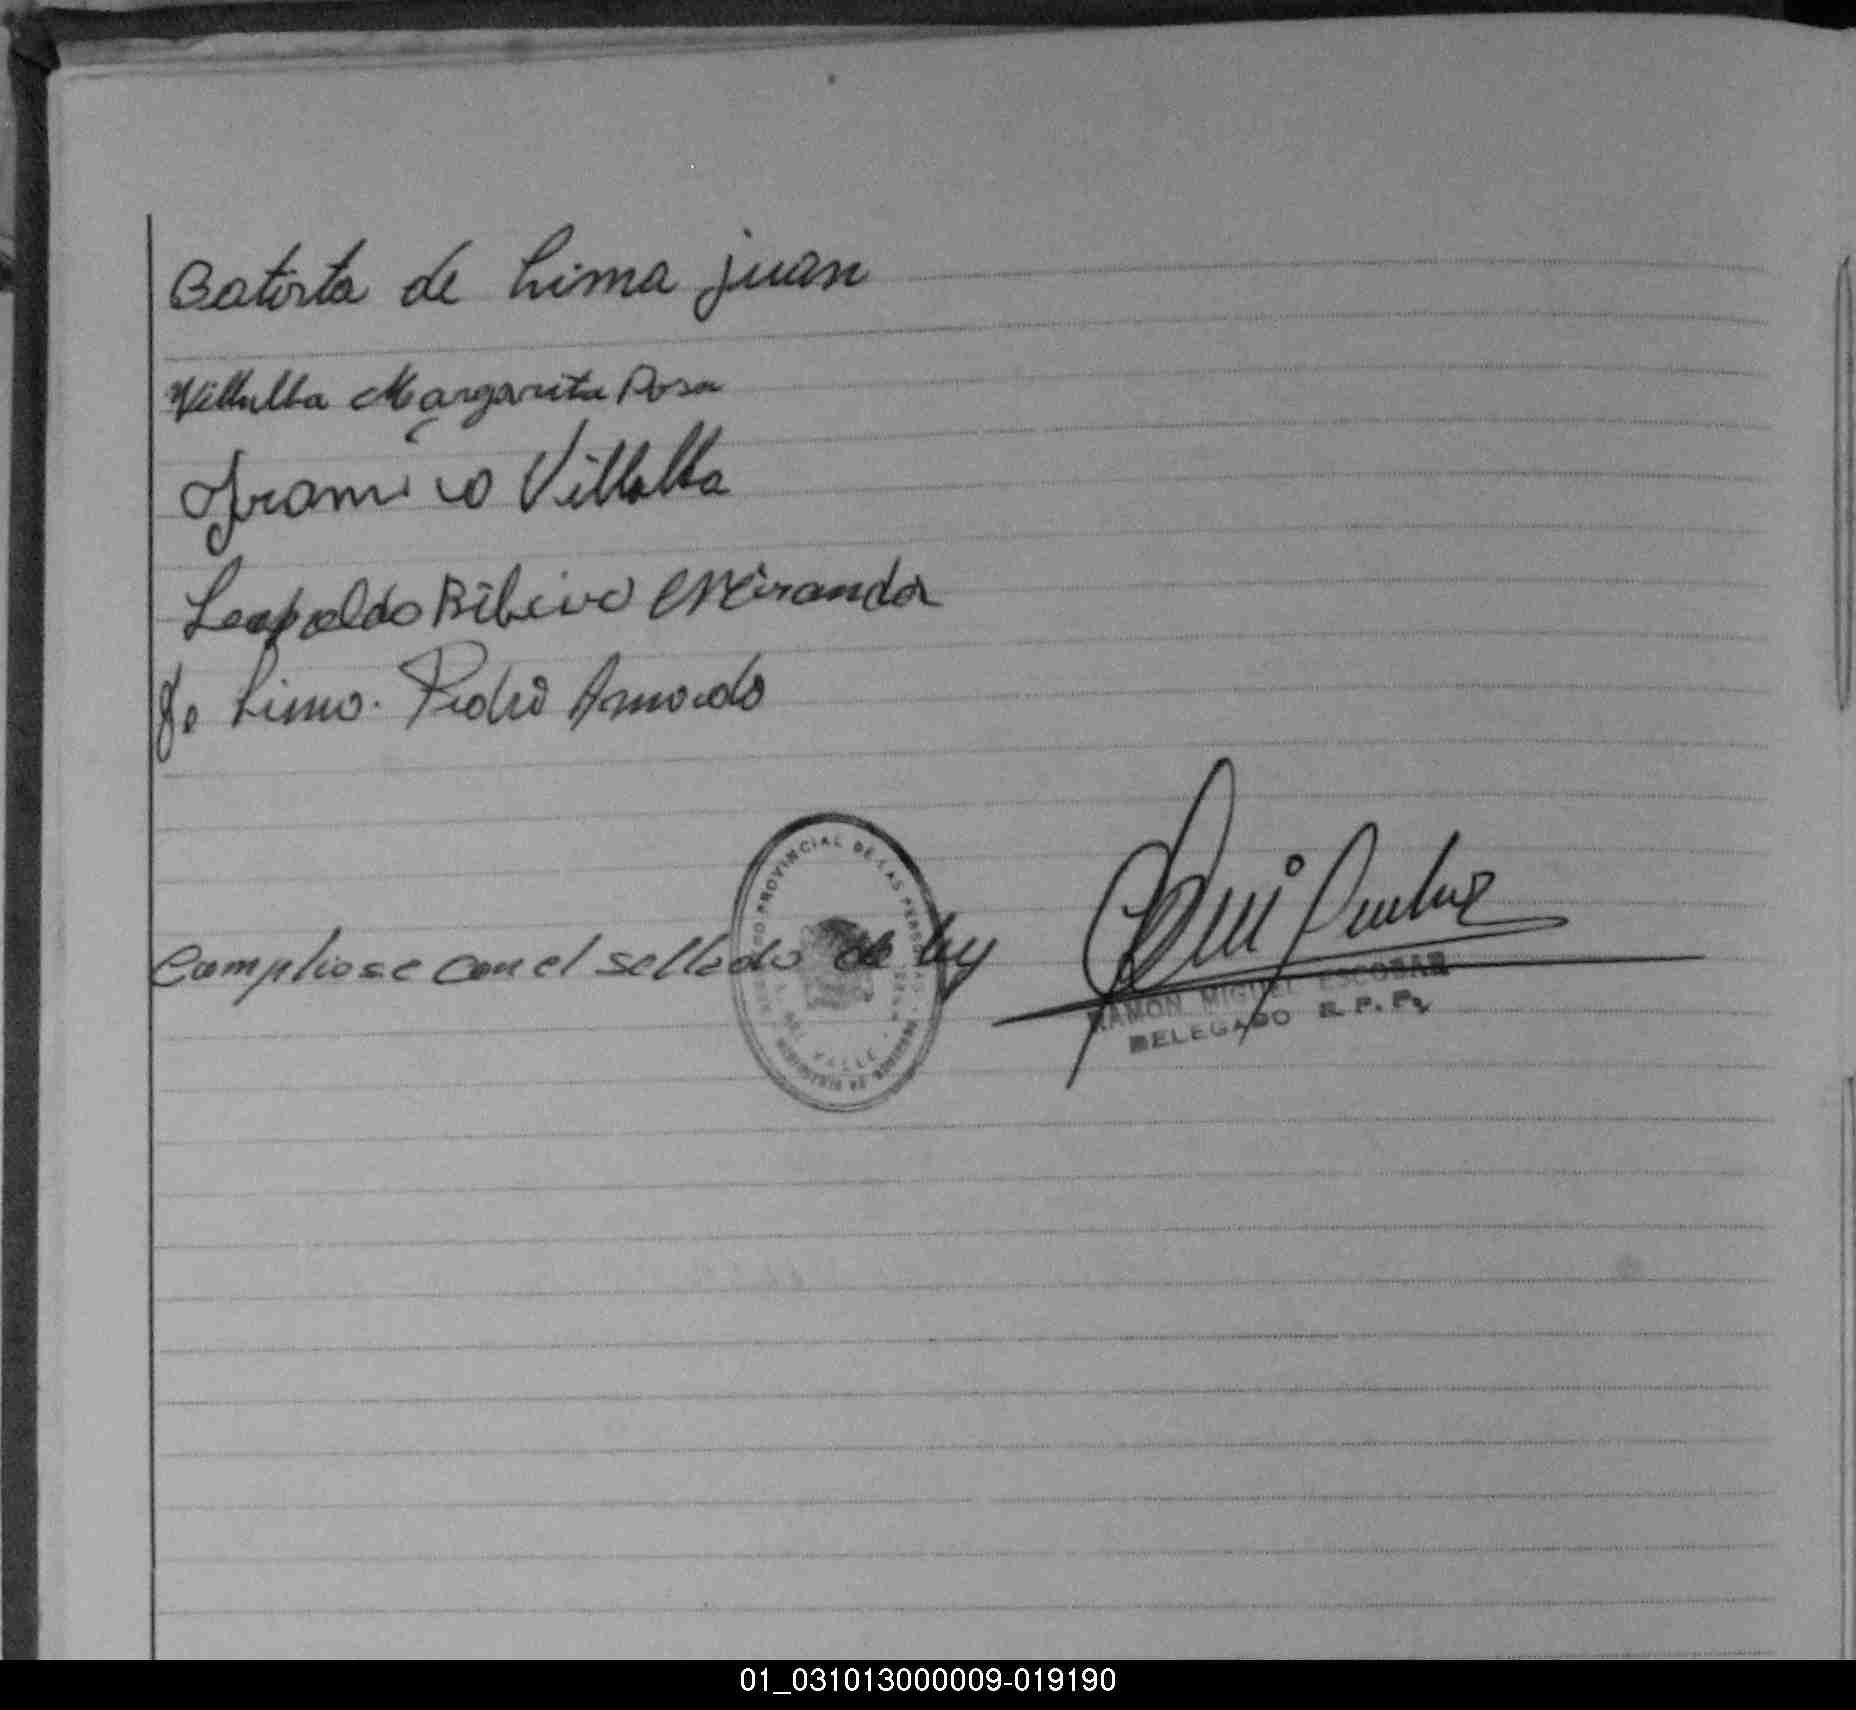 Batista de Lima juan
Villalba Margarita Rosa
Villalba
Leopoldo Ribeiro Miranda
de Lima. Pedro Armando
Cumpliose con el sellado de ley
PROVINCIAL DE LAS PERSONAS
DEL VALLE
RAMON MIGUEL ESCOBAR
DELEGADO R. P. P.
01_031013000009-019190